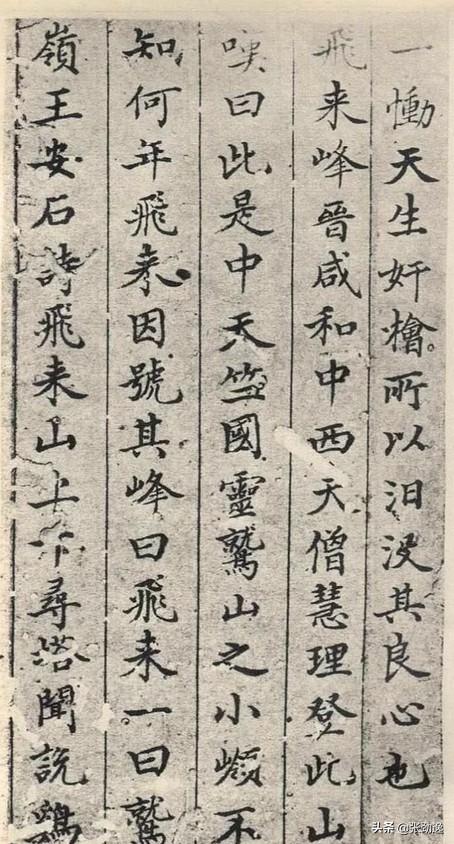 一慟天生奸檜所以汨没其良心也
飛来峰晉咸和中西天僧慧理登此山
嘆曰此是中天竺國靈鷲山之小嶺不
知何年飛来因號其峰曰飛来一曰鷲
嶺王安石詩飛来山上千尋塔聞說鷄
头条 @张劲馋